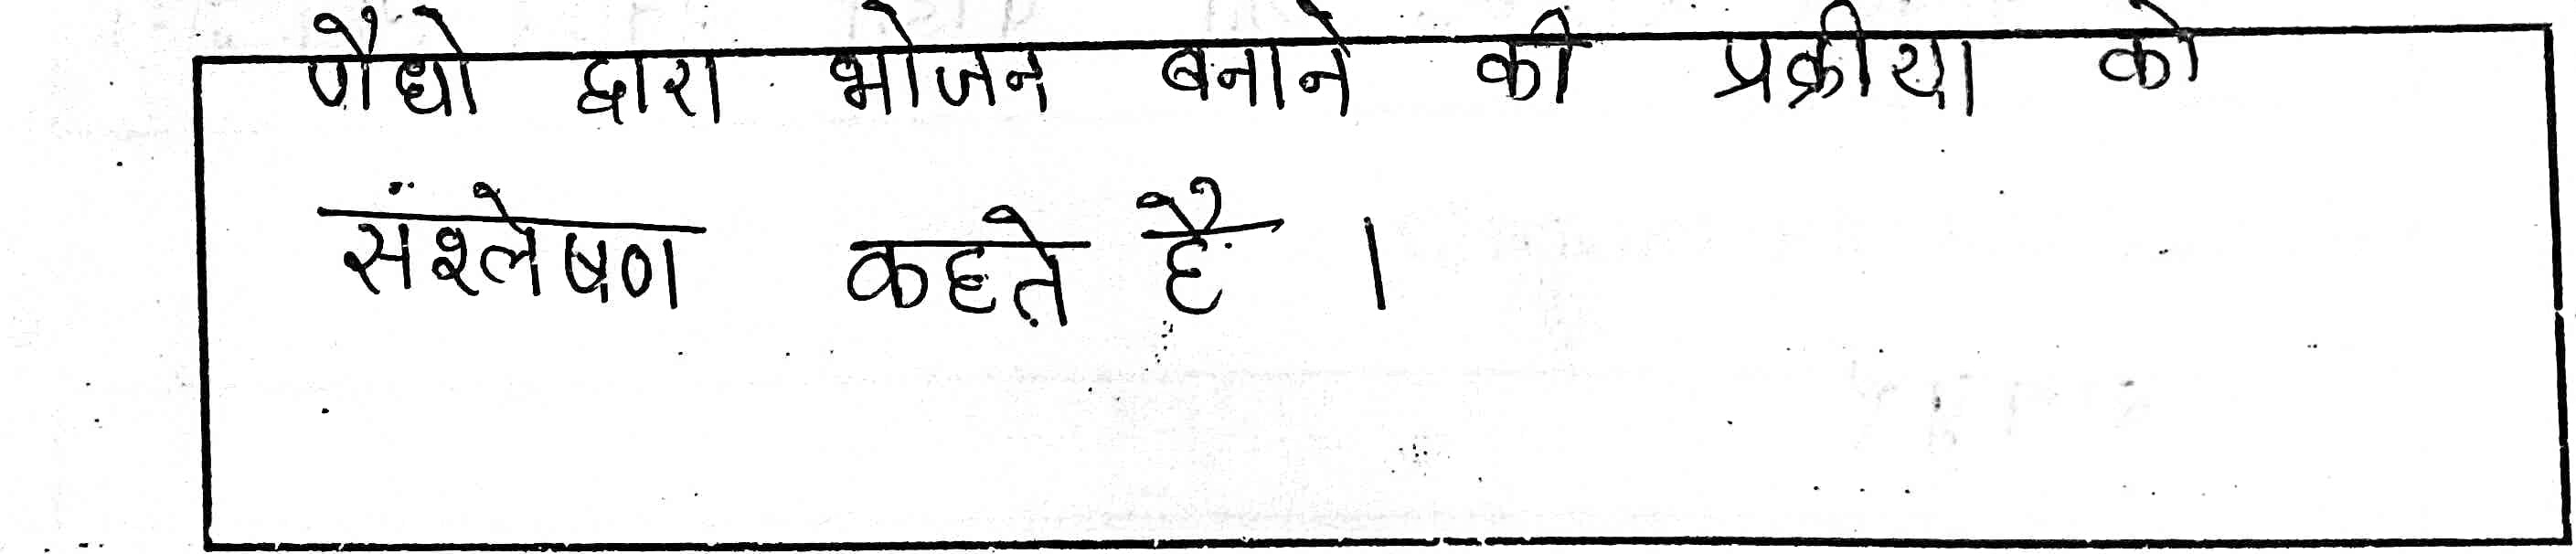 पौधो द्वारा भोजन बनाने की प्रक्रीया को
संश्लेषण कहते है ।